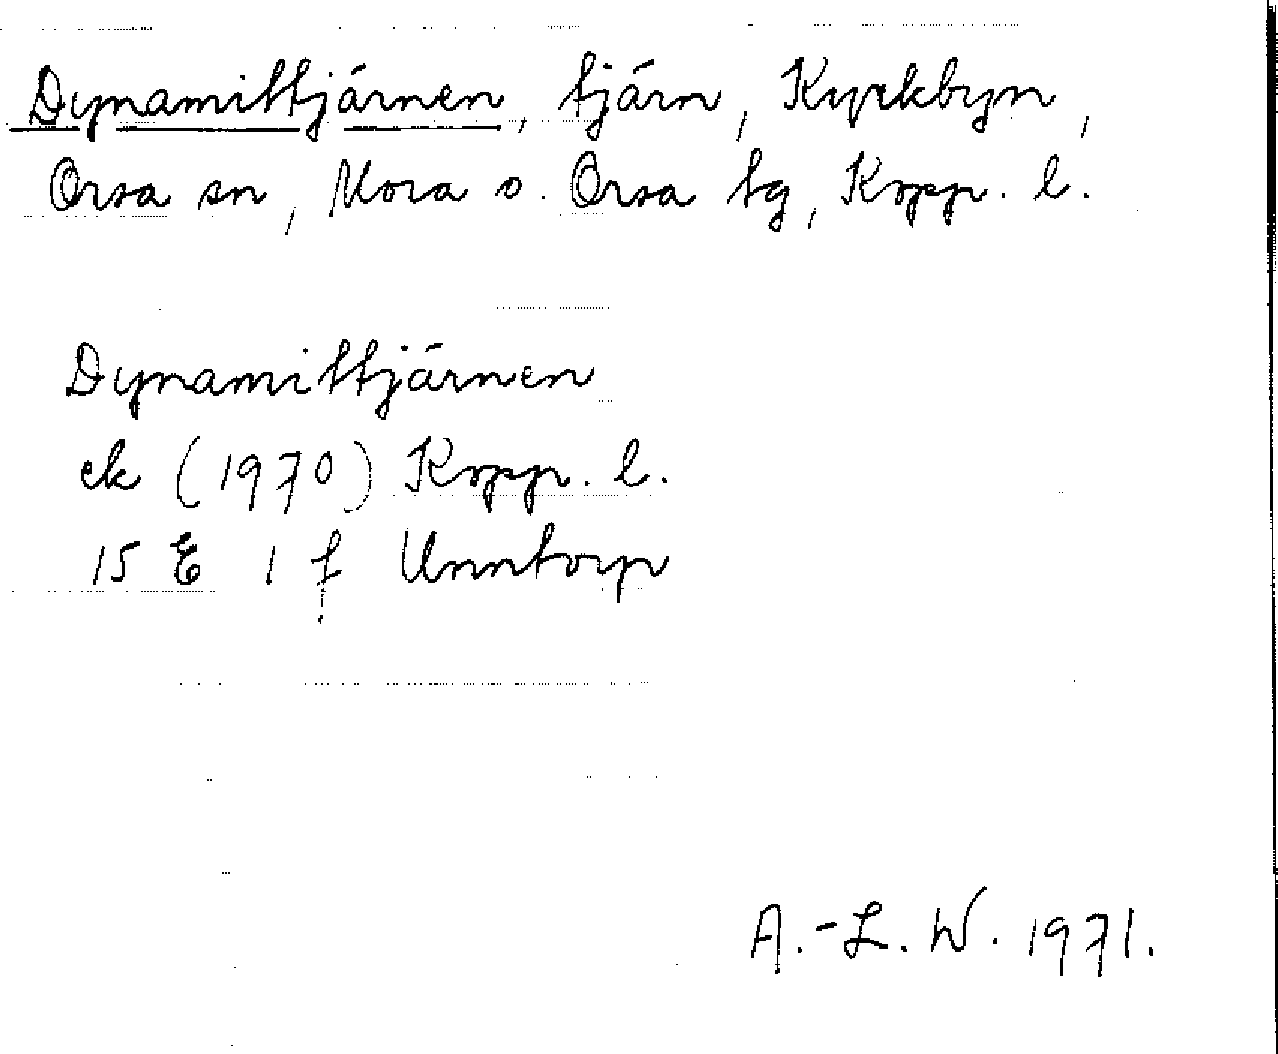 Dynamittjärnen, tjärn, Kyrkbyn,
Orsa sn, Mora o. Orsa tg, Kopp. l.
Dynamittjärnen
ek (1970) Kopp. l.
15 E 1 f Unntorp
A.-L. W. 1971.